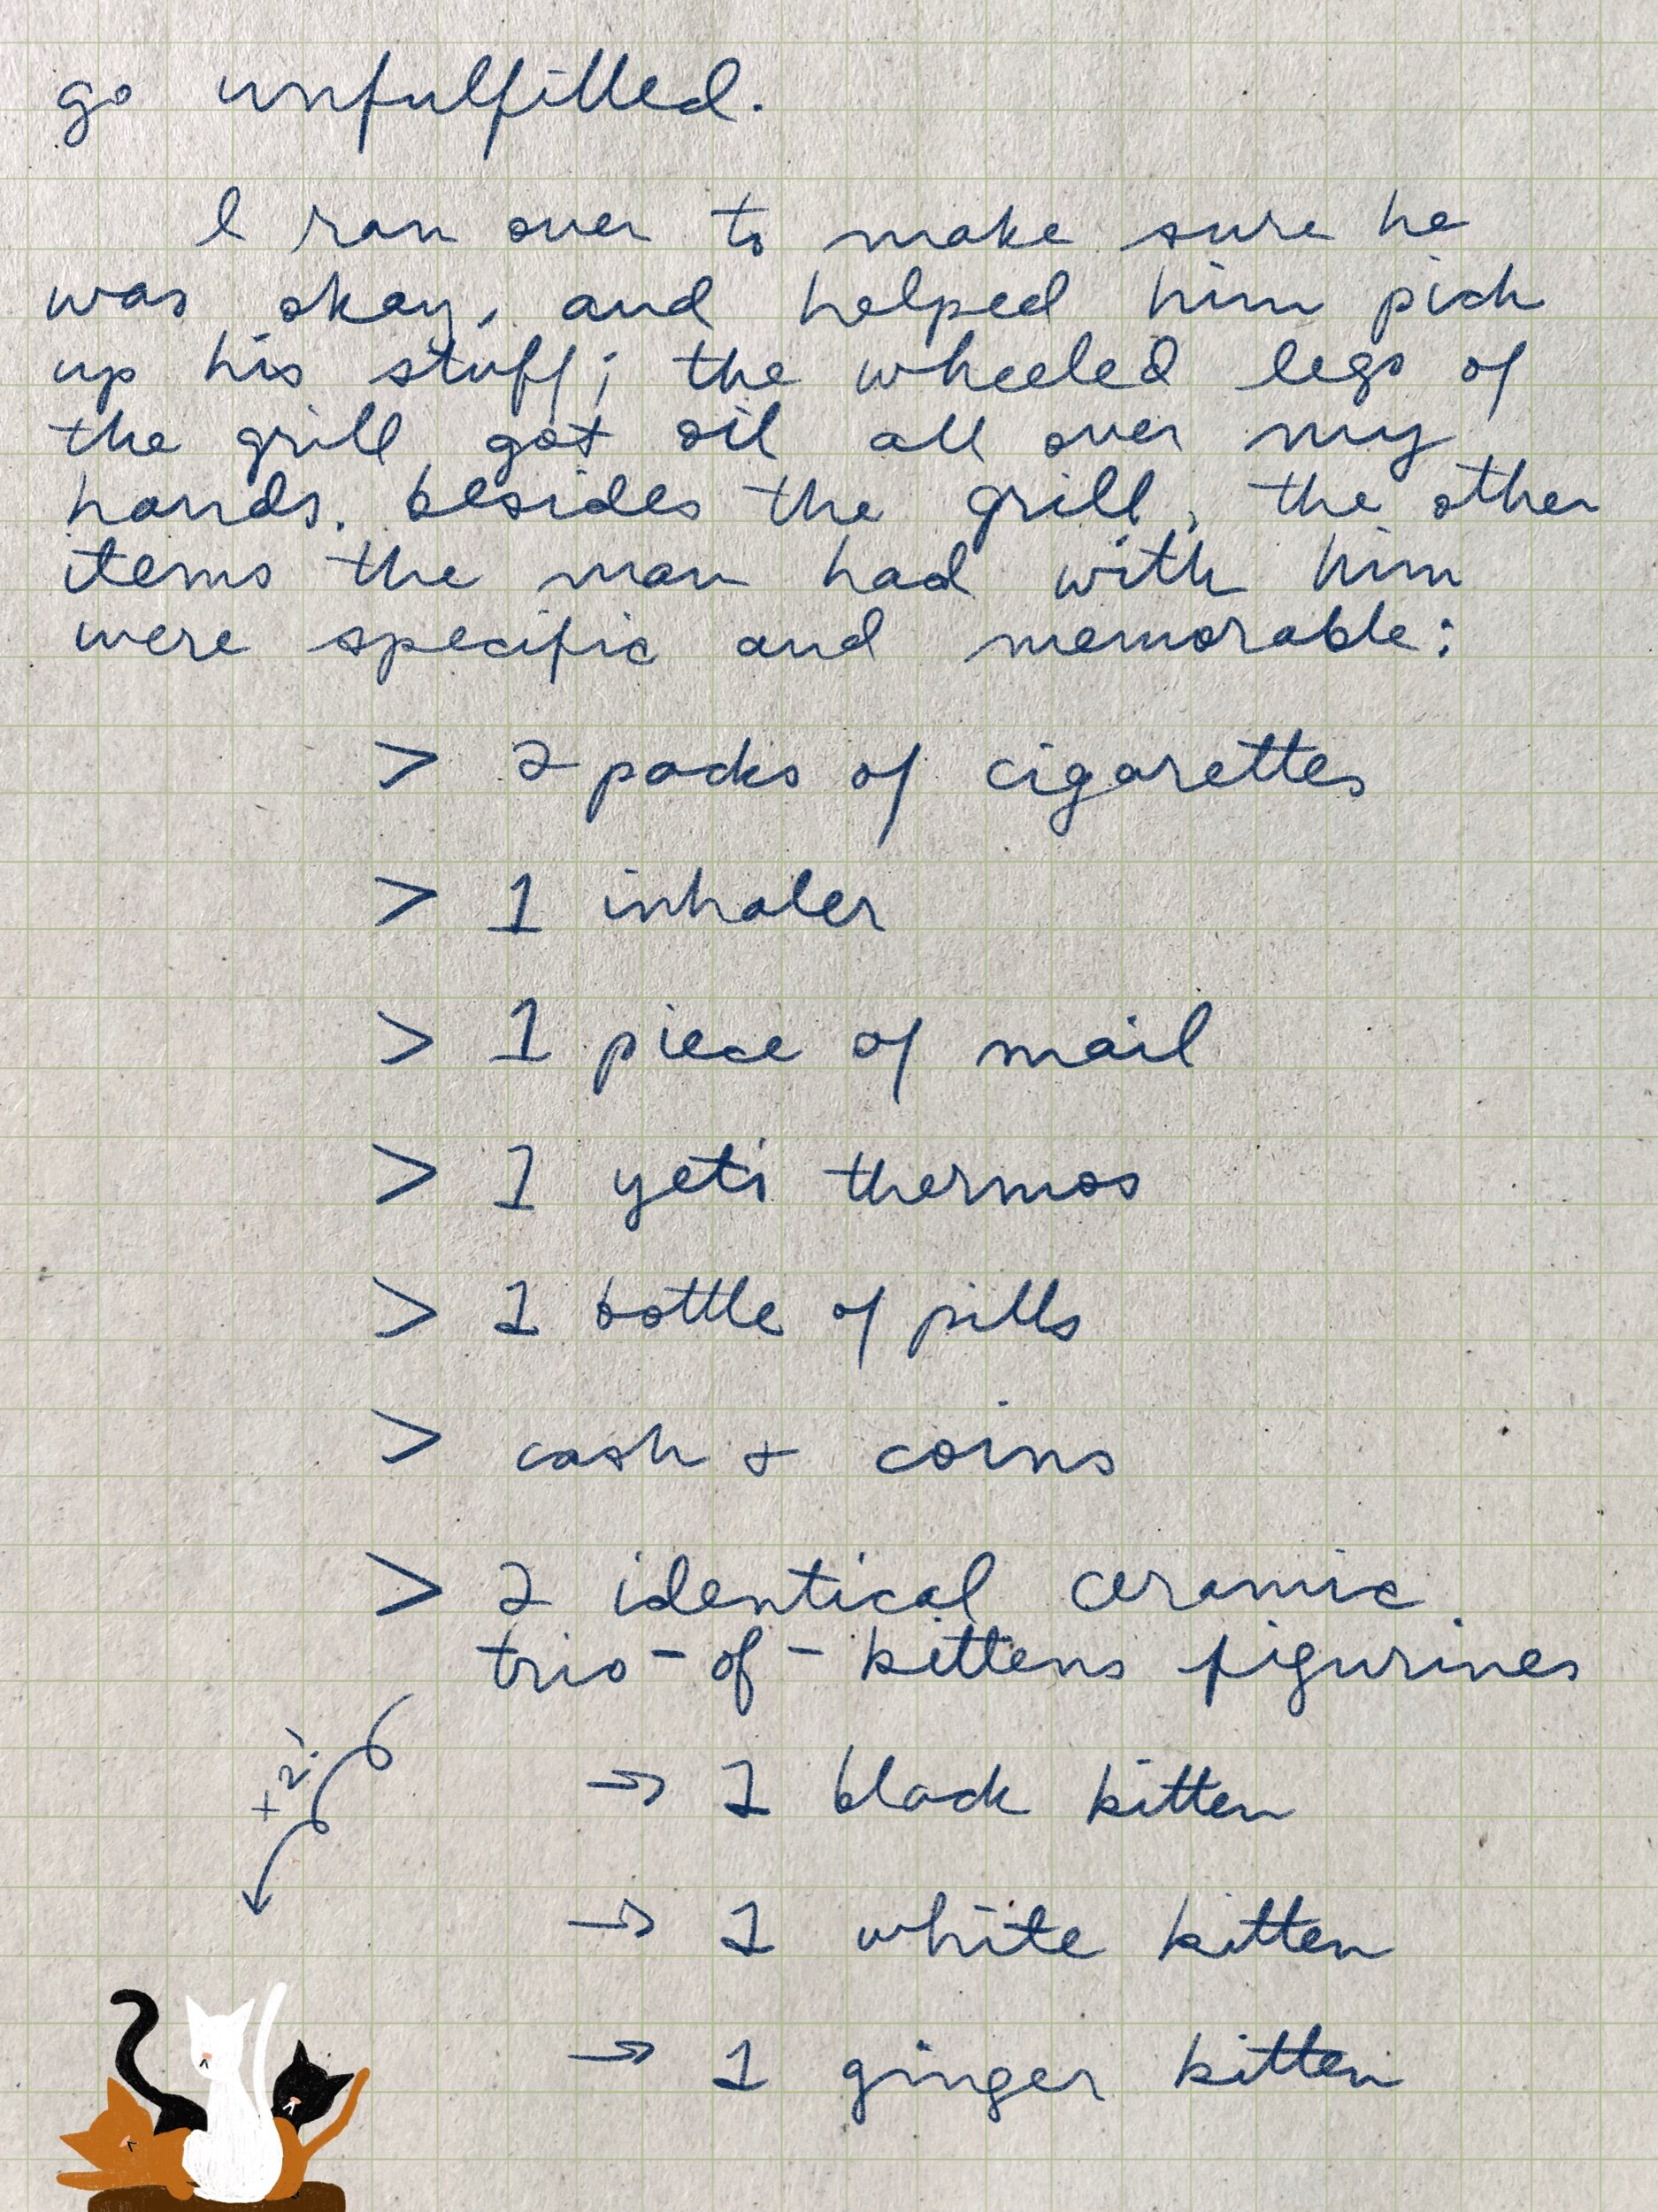 go unfulfilled.
I ran over to make sure he
was okay, and helped him pick
up his stuff; the wheeled legs of
the grill got oil all over my
hands. besides the grill, the other
items the man had with him
were specific and memorable:
> 2 packs of cigarettes
> 1 inhaler
> 1 piece of mail
> 1 yeti thermos
> 1 bottle of pills
> cash & coins
> 2 identical ceramic
trio-of-kittens figurines
x2!
→ 1 black kitten
→ 1 white kitten
→ 1 ginger kitten